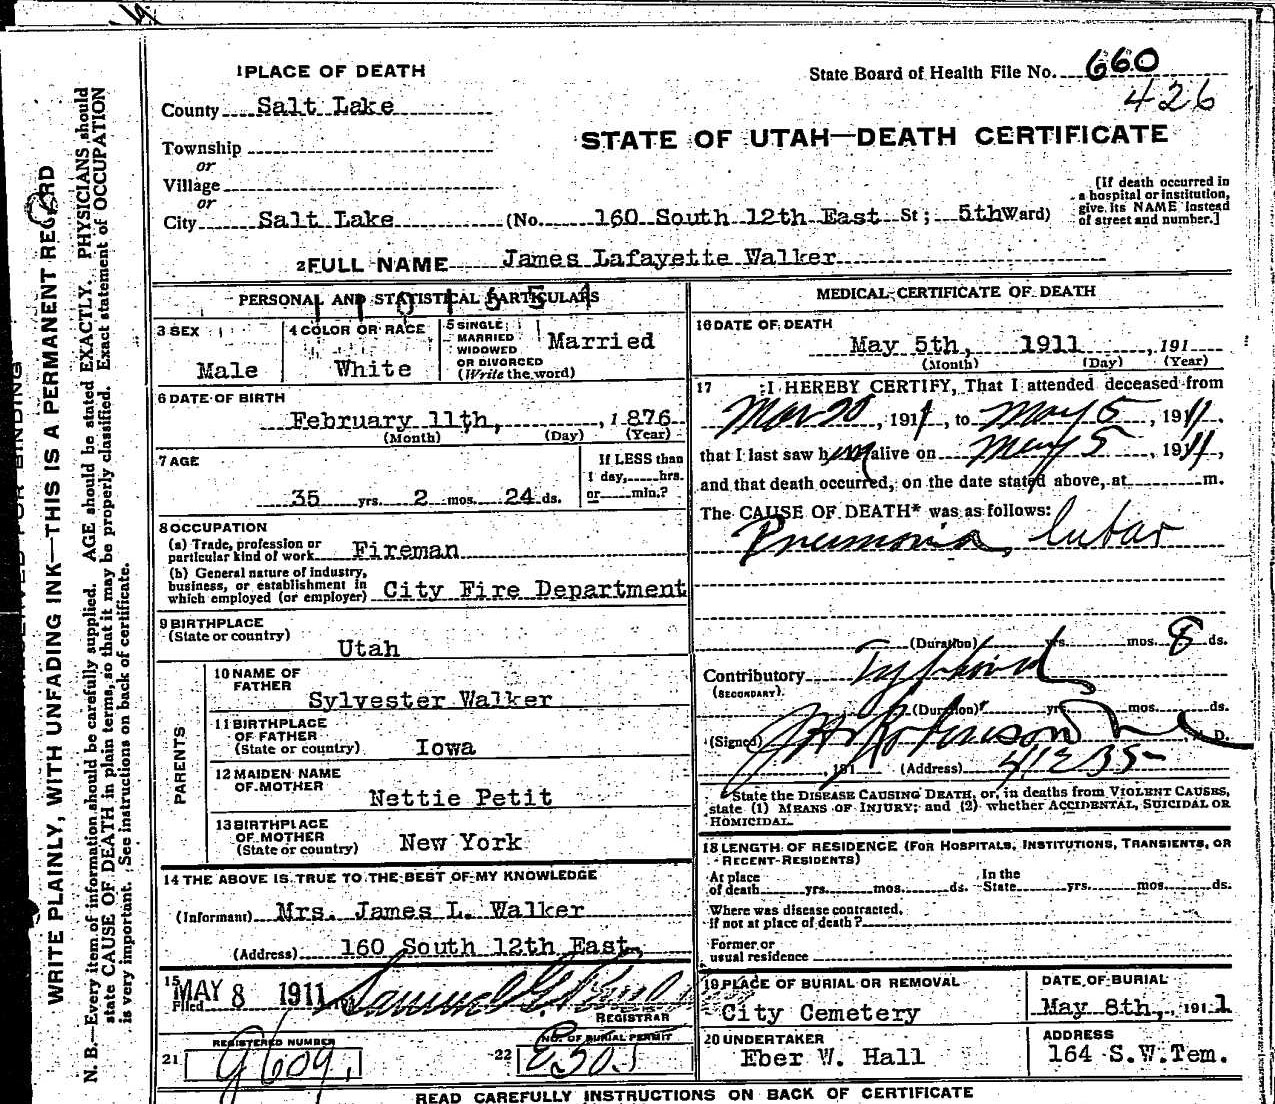 1 PLACE OF DEATH
State Board of Health File No. 660
426
County Salt Lake
STATE OF UTAH—DEATH CERTIFICATE
Township
or
Village
or
City Salt Lake (No. 160 South 12th East St; 5th Ward)
[If death occurred in
a hospital or institution,
give its NAME instead
of street and number.]
2 FULL NAME James Lafayette Walker
PERSONAL AND STATISTICAL PARTICULARS
3 SEX
Male
4 COLOR OR RACE
White
5 SINGLE
MARRIED
WIDOWED
OR DIVORCED
(Write the word)
Married
6 DATE OF BIRTH
February 11th, , 1876
(Month) (Day) (Year)
7 AGE
35 yrs. 2 mos. 24 ds.
If LESS than
1 day, hrs.
or min.?
8 OCCUPATION
(a) Trade, profession or
particular kind of work Fireman
(b) General nature of industry,
business, or establishment in
which employed (or employer) City Fire Department
9 BIRTHPLACE
(State or country)
Utah
PARENTS
10 NAME OF
FATHER
Sylvester Walker
11 BIRTHPLACE
OF FATHER
(State or country) Iowa
12 MAIDEN NAME
OF MOTHER
Nettie Petit
13 BIRTHPLACE
OF MOTHER
(State or country) New York
14 THE ABOVE IS TRUE TO THE BEST OF MY KNOWLEDGE
(Informant) Mrs. James L. Walker
(Address) 160 South 12th East
15
Filed MAY 8 1911
REGISTRAR
REGISTERED NUMBER
21 9609
NO. OF BURIAL PERMIT
22
MEDICAL CERTIFICATE OF DEATH
16 DATE OF DEATH
May 5th, 1911 , 191
(Month) (Day) (Year)
17 I HEREBY CERTIFY, That I attended deceased from
Mar 20, 1911, to May 5, 1911,
that I last saw him alive on May 5, 1911,
and that death occurred, on the date stated above, at m.
The CAUSE OF DEATH* was as follows:
Pneumonia, lubar
(Duration) yrs. mos. 8 ds.
Contributory Typhoid
(SECONDARY)
(Duration) yrs. mos. ds.
(Signed) Robinson M. D.
, 191 (Address)
*State the DISEASE CAUSING DEATH, or, in deaths from VIOLENT CAUSES,
state (1) MEANS OF INJURY; and (2) whether ACCIDENTAL, SUICIDAL OR
HOMICIDAL.
18 LENGTH OF RESIDENCE (FOR HOSPITALS, INSTITUTIONS, TRANSIENTS, OR
RECENT RESIDENTS)
At place
of death yrs. mos. ds.
In the
State yrs. mos. ds.
Where was disease contracted,
if not at place of death?
Former or
usual residence
19 PLACE OF BURIAL OR REMOVAL
City Cemetery
DATE OF BURIAL
May 8th, 1911
20 UNDERTAKER
Eber W. Hall
ADDRESS
164 S.W.Tem.
READ CAREFULLY INSTRUCTIONS ON BACK OF CERTIFICATE
WRITE PLAINLY, WITH UNFADING INK—THIS IS A PERMANENT RECORD
N. B.—Every item of information should be carefully supplied. AGE should be stated EXACTLY. PHYSICIANS should
state CAUSE OF DEATH in plain terms, so that it may be properly classified. Exact statement of OCCUPATION
is very important. See instructions on back of certificate.